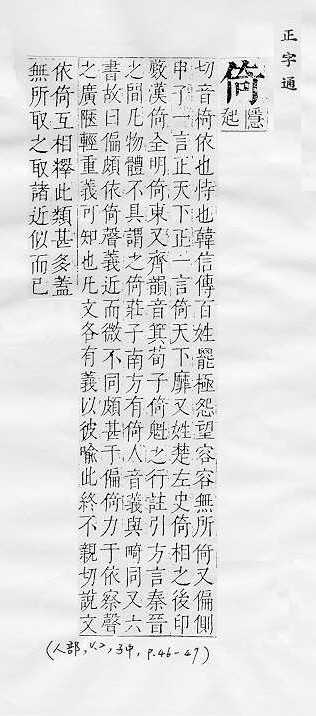 正字通
倚
隱
起
切音椅依也恃也韓信傳百姓罷極怨望容容無所倚又偏側
申子一言正天下正一言倚天下靡又姓楚左史倚相之後印
藪漢倚全明倚東又齊韻音箕荀子倚魁之行註引方言秦晉
之間凡物體不具謂之倚莊子南方有倚人音義與畸同又六
書故曰偏頗依倚聲義近而微不同頗甚于偏倚力于依察聲
之廣隘輕重義可知也凡文各有義以彼喻此終不親切說文
依倚互相釋此類甚多蓋
無所取之取諸近似而已
(人部, v.2, 子中, p.46-47)